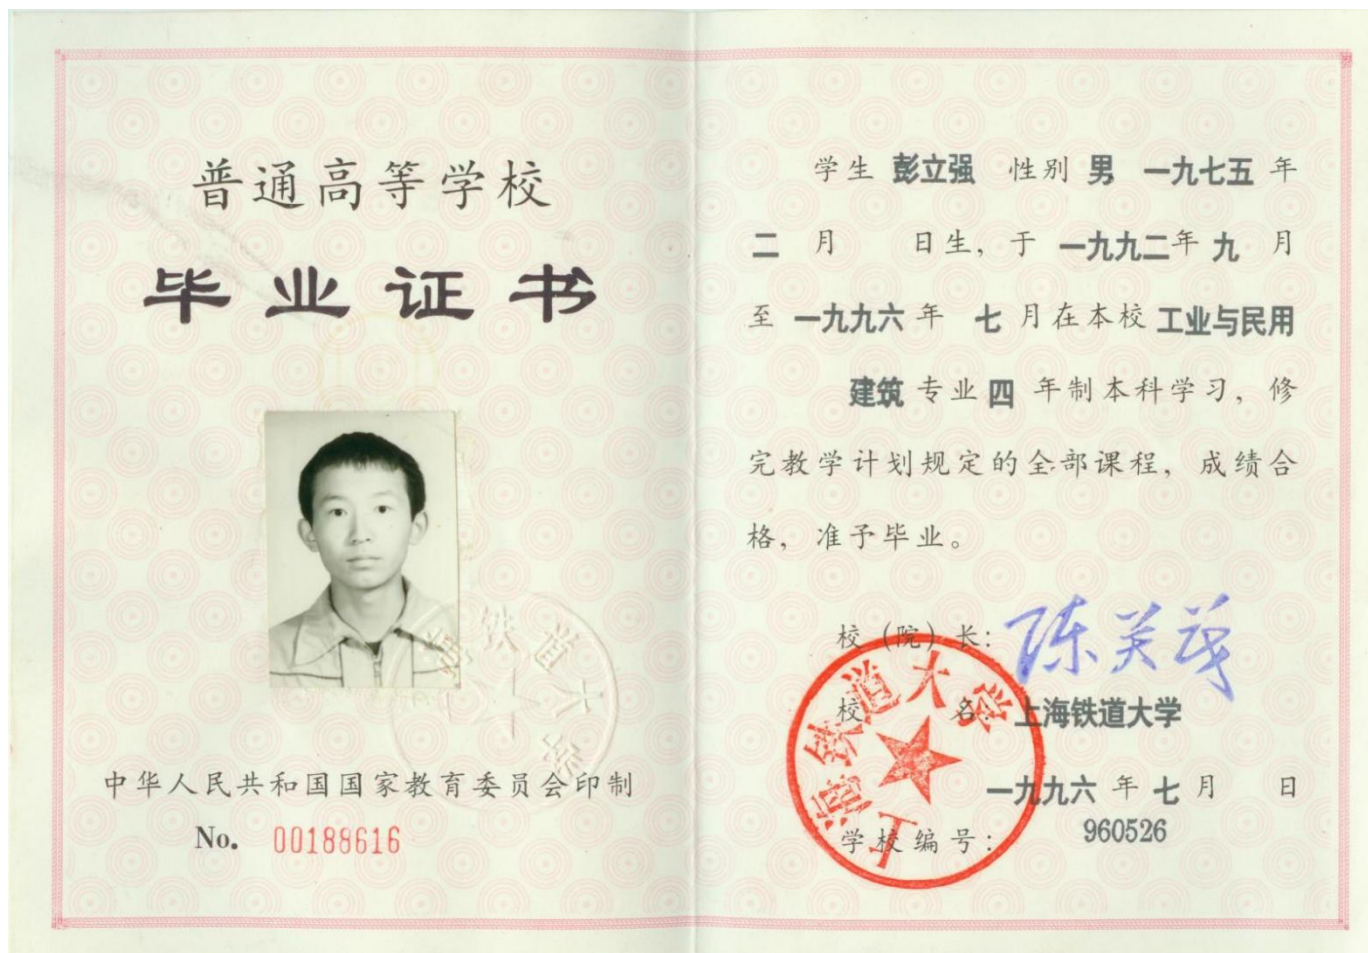 普通高等学校
毕业证书
海铁道大学
中华人民共和国国家教育委员会印制
No. 00188616
学生 彭立强 性别 男 一九七五 年
二 月 日生，于 一九九二年 九 月
至 一九九六 年 七 月在本校 工业与民用
建筑 专业 四 年制本科学习，修
完教学计划规定的全部课程，成绩合
格，准予毕业。
校（院）长：陈关茂
校 名：上海铁道大学
上海铁道大学
一九九六 年 七 月 日
学校编号：960526